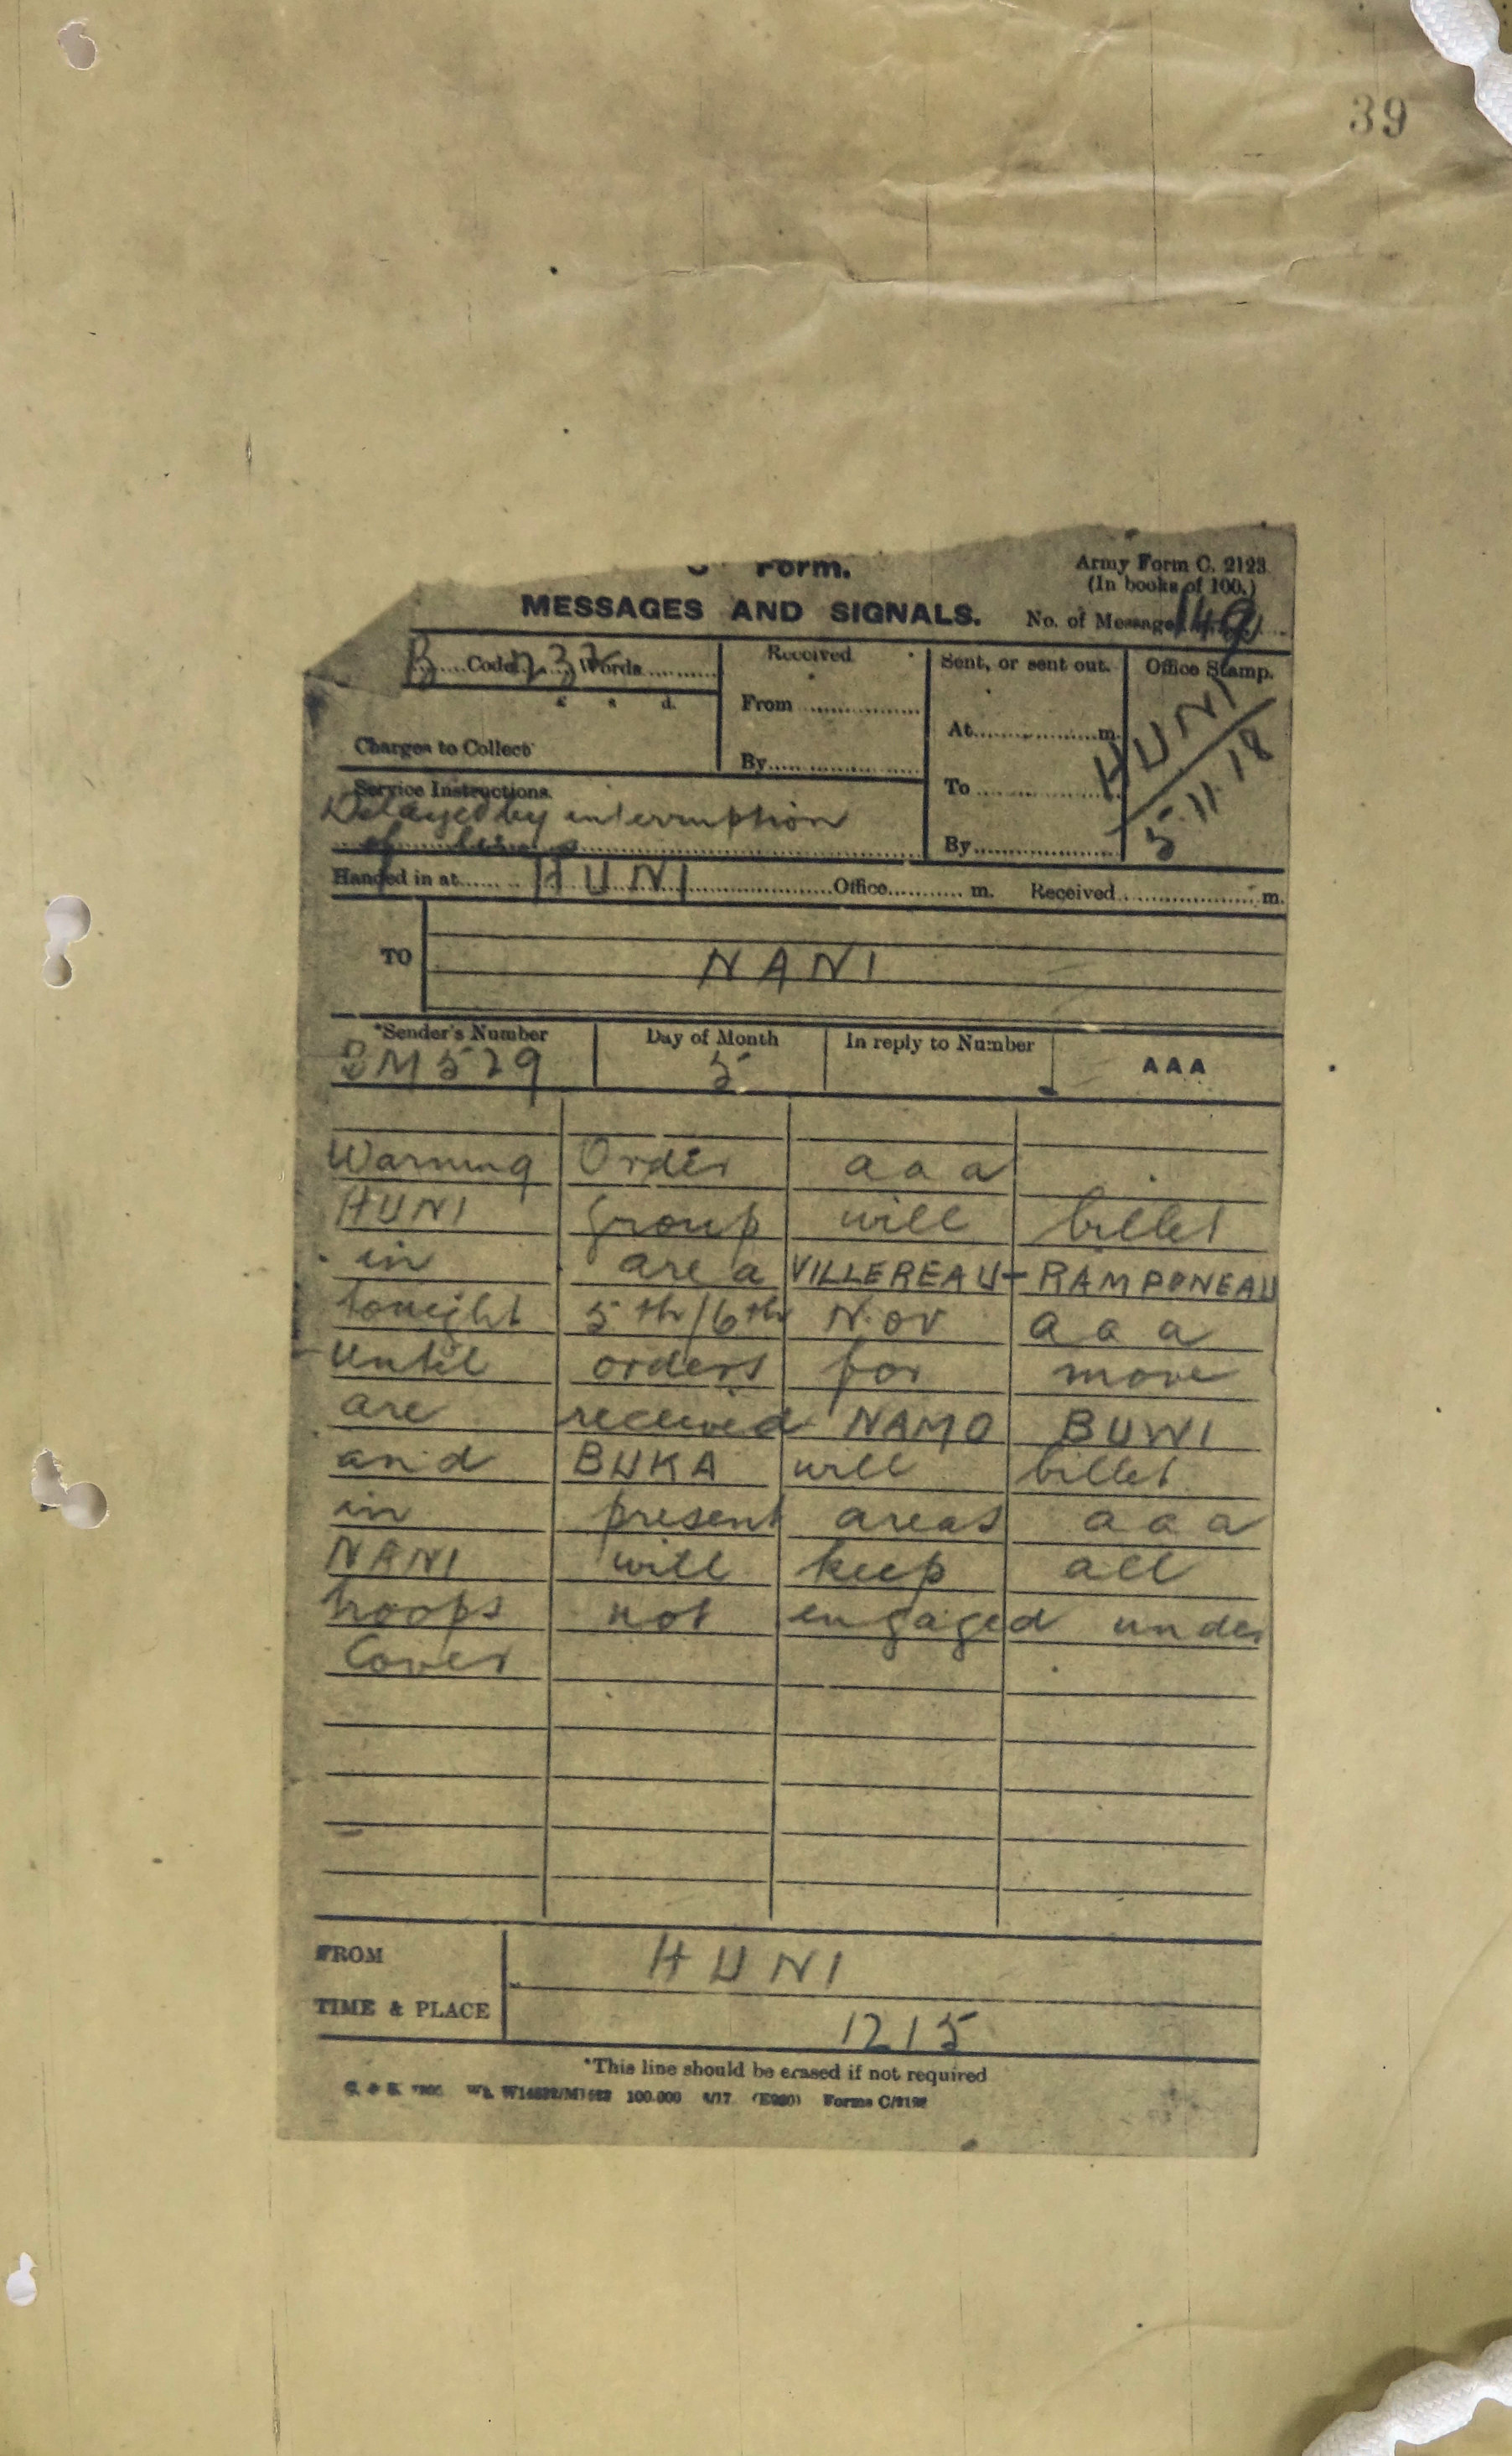 39
Form.
Army Form C. 2123
(In books of 100.)
MESSAGES AND SIGNALS.
No. of Message 149
B Code Words
Received
Sent, or sent out.
Office Stamp.
£ s d.
From
At m.
HUNI
5.11.18
Charges to Collect
By
To
Service Instructions.
Delayed by interruption
of lines
By
Handed in at HUNI Office m. Received m.
TO
NANI
*Sender's Number
Day of Month
In reply to Number
AAA
BM529
5
Warning Order aaa
HUNI group will billet
in area VILLEREAU - RAMPONEAU
tonight 5th/6th Nov aaa
until orders for move
are received NAMO BUWI
and BUKA will billet
in present areas aaa
NANI will keep all
troops not engaged under
Cover
FROM HUNI
TIME & PLACE 1215
*This line should be erased if not required
100,000